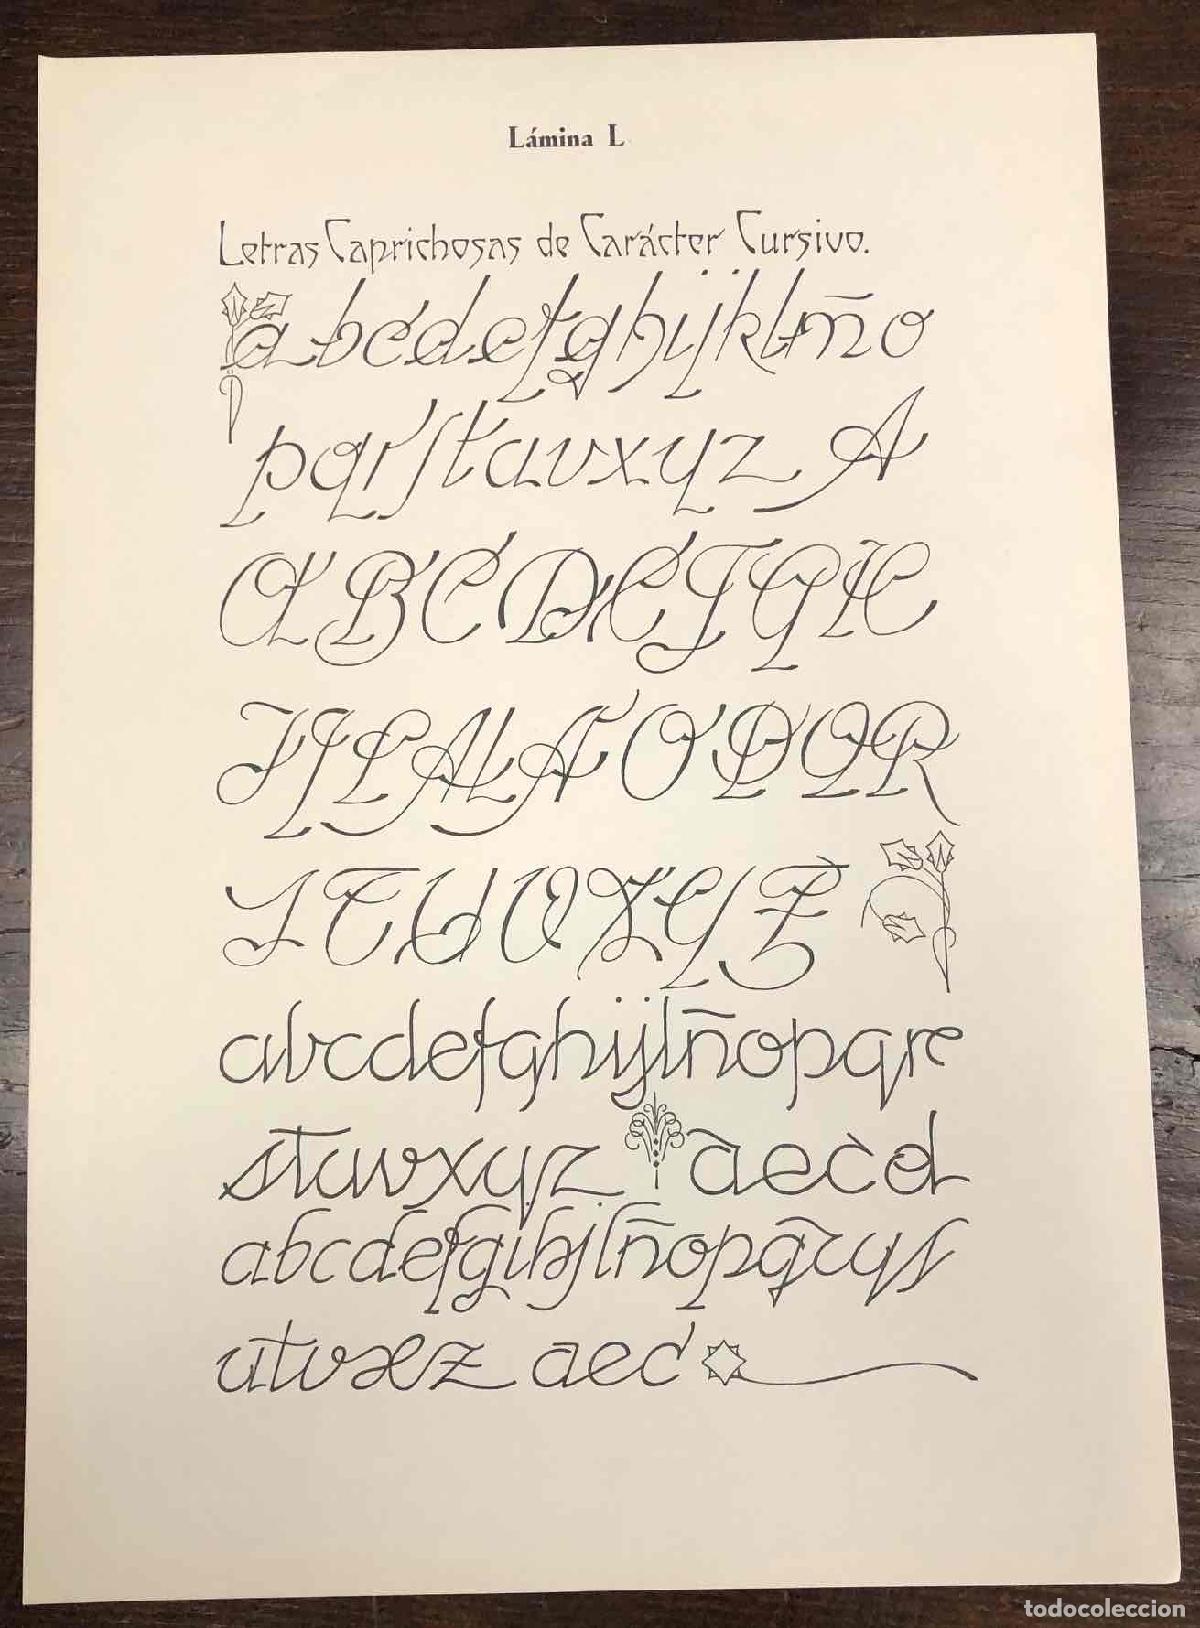 Lámina L
Letras Caprichosas de Carácter Cursivo.
abcdefghijklmño
pqrstuvxyz A
ABCDEFGH
IJLMNÑOPQR
STUVXYZ
abcdefghijlñopqre
stuvxyz aecd
abcdefgihjlñopqrys
utvxz aec
todocoleccion